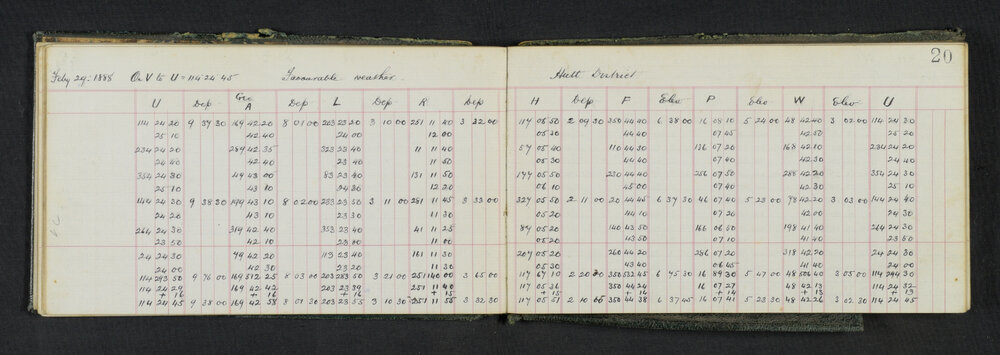 20
Feby 29. 1888 On V to U = 114 24 45 Favourable weather. Hutt District
U Dep Geo A Dep L Dep R Dep H Dep F Elev P Elev W Elev U
114 24 20 9 37 30 169 42 20 8 01 00 203 23 20 3 10 00 251 11 40 3 32 00 117 05 50 2 09 30 350 44 40 6 38 00 16 08 10 5 24 00 48 42 40 3 02 00 114 24 30
25 10 42 40 24 00 12 00 05 30 44 40 07 45 42 50 25 20
234 24 20 289 42 35 323 23 40 11 11 40 57 05 40 110 44 30 136 07 20 168 42 10 234 24 20
24 40 42 40 23 40 11 50 05 30 44 40 07 20 42 30 24 40
354 24 30 49 43 00 83 23 40 131 11 50 177 05 50 230 44 40 256 07 50 288 42 20 354 24 30
25 10 43 10 24 30 12 20 06 10 45 00 07 40 42 30 25 10
144 24 30 9 38 30 199 43 10 8 02 00 233 23 50 3 11 00 281 11 45 3 33 00 327 05 50 2 11 00 20 44 45 6 37 30 46 07 40 5 23 00 78 42 20 3 03 00 144 24 40
24 20 43 10 23 30 11 30 05 20 44 10 07 20 42 00 24 30
264 24 30 319 42 40 353 23 40 41 11 25 87 05 20 140 43 50 166 06 50 198 41 40 264 24 30
23 50 42 10 23 00 11 00 05 20 43 50 07 10 41 40 23 50
24 24 30 79 42 20 113 23 40 161 11 30 207 05 20 260 44 20 286 07 20 318 42 20 24 24 30
24 00 42 30 23 20 11 30 05 30 43 40 06 45 41 40 24 00
114 293 50 9 76 00 169 512 25 8 03 00 203 283 50 3 21 00 251 140 00 3 65 00 117 67 10 2 20 30 350 532 45 6 75 30 16 89 30 5 47 00 48 506 40 3 05 00 114 294 30
114 24 29 169 42 42 203 23 39 251 11 40 117 05 36 350 44 24 16 07 27 48 42 13 114 24 32
+ 16 + 16 + 16 + 15 + 15 + 14 + 14 + 13 + 13
114 24 45 9 38 00 169 42 58 8 01 30 203 23 55 3 10 30 251 11 55 3 32 30 117 05 51 2 10 05 350 44 38 6 37 45 16 07 41 5 23 30 48 42 26 3 02 30 114 24 45